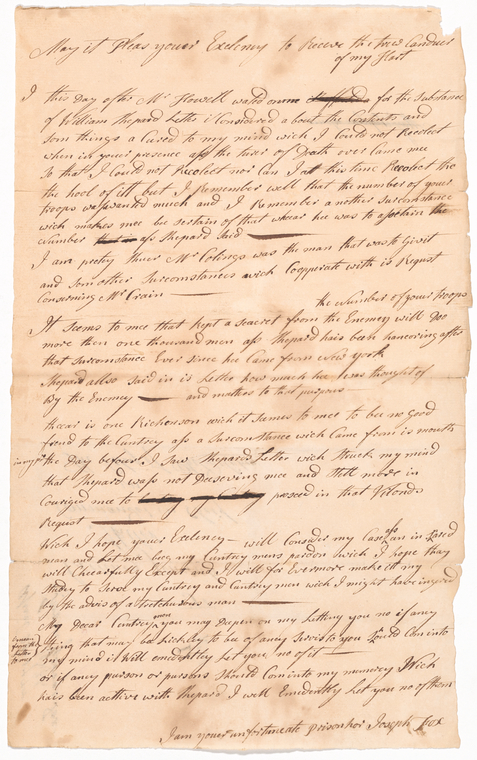 May it Pleas youer Exelency to Receve the trew Canduer
of my Hart
I this Day after Mr Howell wated on me for the Substance
of William Shepard Letter i Consedered about the Contents and
som things a Cured to my mind wich I Could not Recolect
when in youer presence ass the tarer of Death over Came mee
So that I Could not Recolect nor Can I at this time Recolect the
the hool of itt but I Remember well that the number of your
troops was wanted much and I Remember a nother Surcumstance
wich makes mee be sertain of that whear hee was to assertain the
Number ass Shepard Said
I am prety Shuer Mr Colings was the man that was to Givit
and Som other Surcomstances wich Cooperate with is Request
Conserning Mr Crain
the Number of your troops
It Seems to mee that Kept a Seacret from the Enemey will Doo
more then one thousand men ass Shepard hais been hancoring after
that Surcomstance Ever Since hee Came from New York
Shepard allso Said in is Letter how much hee was thought of
By the Enemey and mutch to that purpose
thear is one Richenson wich it Semes to mee to bee no good
frend to the Cuntrey ass a Surcomstance wich Came from is mouth
in my
the Day before I Saw Shepards Letter wich Struck my mind
that Shepard wass not Deceveing mee and Still more in
Couriged mee to proseed in that Vilonds
Request
Wich I hope youer Exelency will Consider my Case ass an in Lased
man and Let mee beg my Cuntrey mens pardon wich I hope thay
will Chearfully Except and I will for Evermore make itt my
Studey to Serve my Cuntrey and Cuntrey men wich I might have ingered
by the advis of a tretcherous man
My Dear Cuntrey men you may Depen on my Letting you no if any
thing that may be Lickley to be of aney Servis to you Should Com into
my mind it Will emedentley Let you no of it
or if aney purson or pursons Should Com into my memorey Wich
hais been active with Shepard I will Emedently Let you no of them
I am youer unfortineate prisonhor Joseph Fox